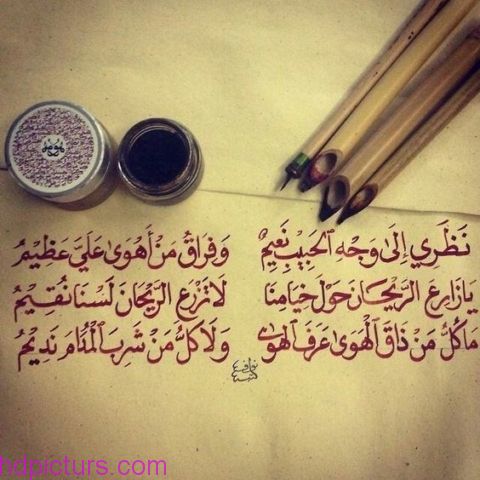 نَظَرِي إِلَى وَجْهِ الحَبِيْبِ نَعِيْمٌ وَفِرَاقُ مَنْ أَهْوَى عَلَيَّ عَظِيْمُ
يَا زَارِعَ الرَّيْحَانِ حَوْلَ خِيَامِنَا لَا تَزْرَعِ الرَّيْحَانَ لَسْنَا نُقِيْمُ
مَا كُلُّ مَنْ ذَاقَ الْهَوَى عَرَفَ الْهَوَى وَلَا كُلُّ مَنْ شَرِبَ الْمُدَامَ نَدِيْمُ
hdpicturs.com